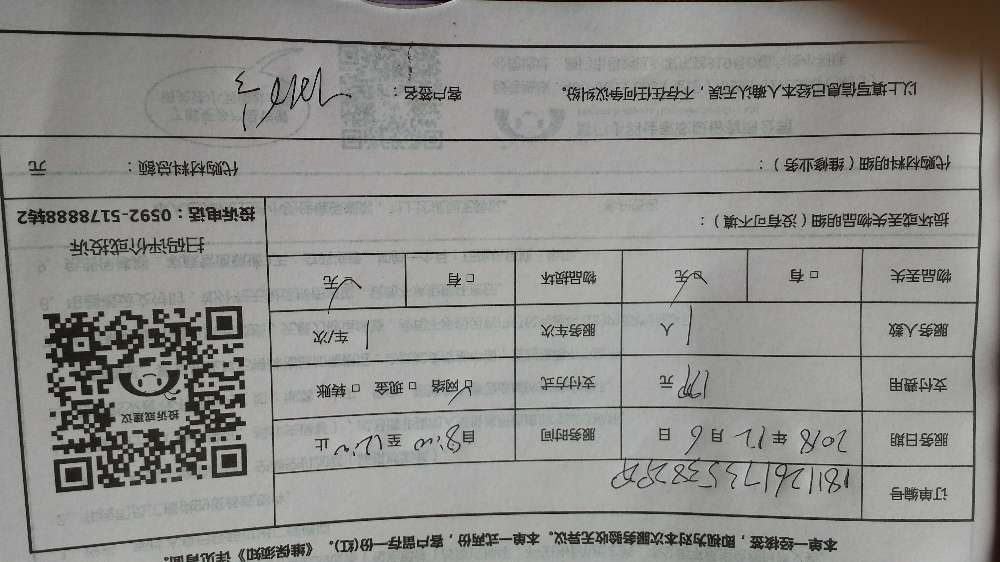 本单一经接签，即视为对本次服务验收无异议。本单一式两份，客户留存一份(红)。《维保须知》详见背面。
订单编号
服务日期 2018 年 12 月 6 日 服务时间 自 8:00 至 12:00 止
支付费用 元 支付方式 ☑ 网络 □ 现金 □ 转账
服务人数 1 人 服务车次 1 车/次
物品丢失 □ 有 ☑ 无 物品损坏 □ 有 ☑ 无
投诉或建议
扫码评价或投诉
投诉电话：0592-5178888转2
损坏或丢失物品明细（没有可不填）：
代购材料明细（维修业务）： 代购材料总额： 元
以上填写信息已经本人确认无误，不存在任何争议纠纷。 客户签名：